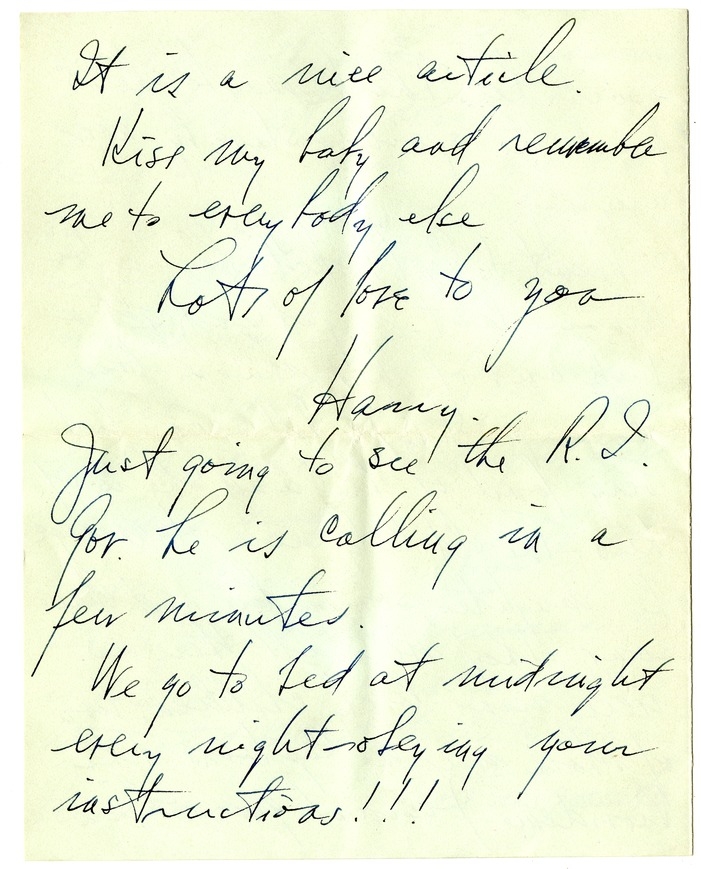 It is a nice article.
Kiss my baby and remember
me to everybody else
Lots of love to you
Harry.
Just going to see the R.I.
Gov. he is calling in a
few minutes.
We go to bed at midnight
every night-obeying your
instructions!!!